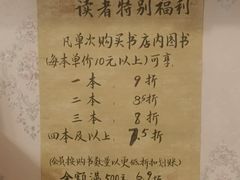 读者特别福利
凡单次购买书店内图书
(每本单价10元以上)可享
一本, 9折
二本, 85折
三本, 8折
四本及以上, 7.5折
金额满500元 6.9折